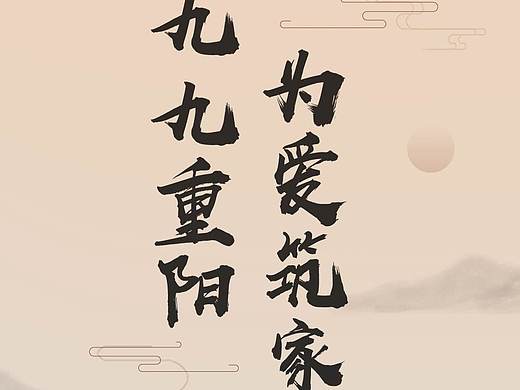 九九重阳
为爱筑家